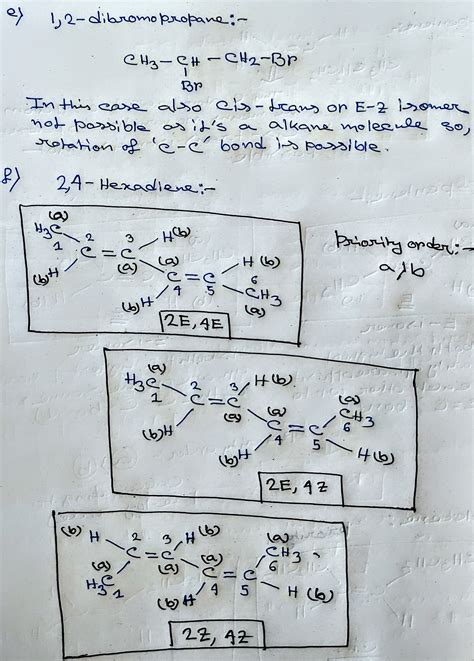 e) 1,2-dibromopropane:-
CH3-CH-CH2-Br
Br
In this case also cis-trans or E-Z isomer
not possible as it's a alkane molecule so,
rotation of 'C-C' bond is possible.
f) 2,4-Hexadiene:-
(a)
H3C 2 3 H(b)
1 C=C (a) H(b)
(b)H (a) C=C 6
4 5 CH3
(b)H (a)
2E, 4E
Priority order:-
a>b
(a)
H3C 2 3 H(b)
1 C=C (a) (a)
(b)H (a) C=C CH3
4 5 6
(b)H H(b)
2E, 4Z
(b) H 2 3 H(b)
C=C (a) (a)
(a) (a) C=C CH3
H3C 4 5 6
1 (b)H H(b)
2Z, 4Z